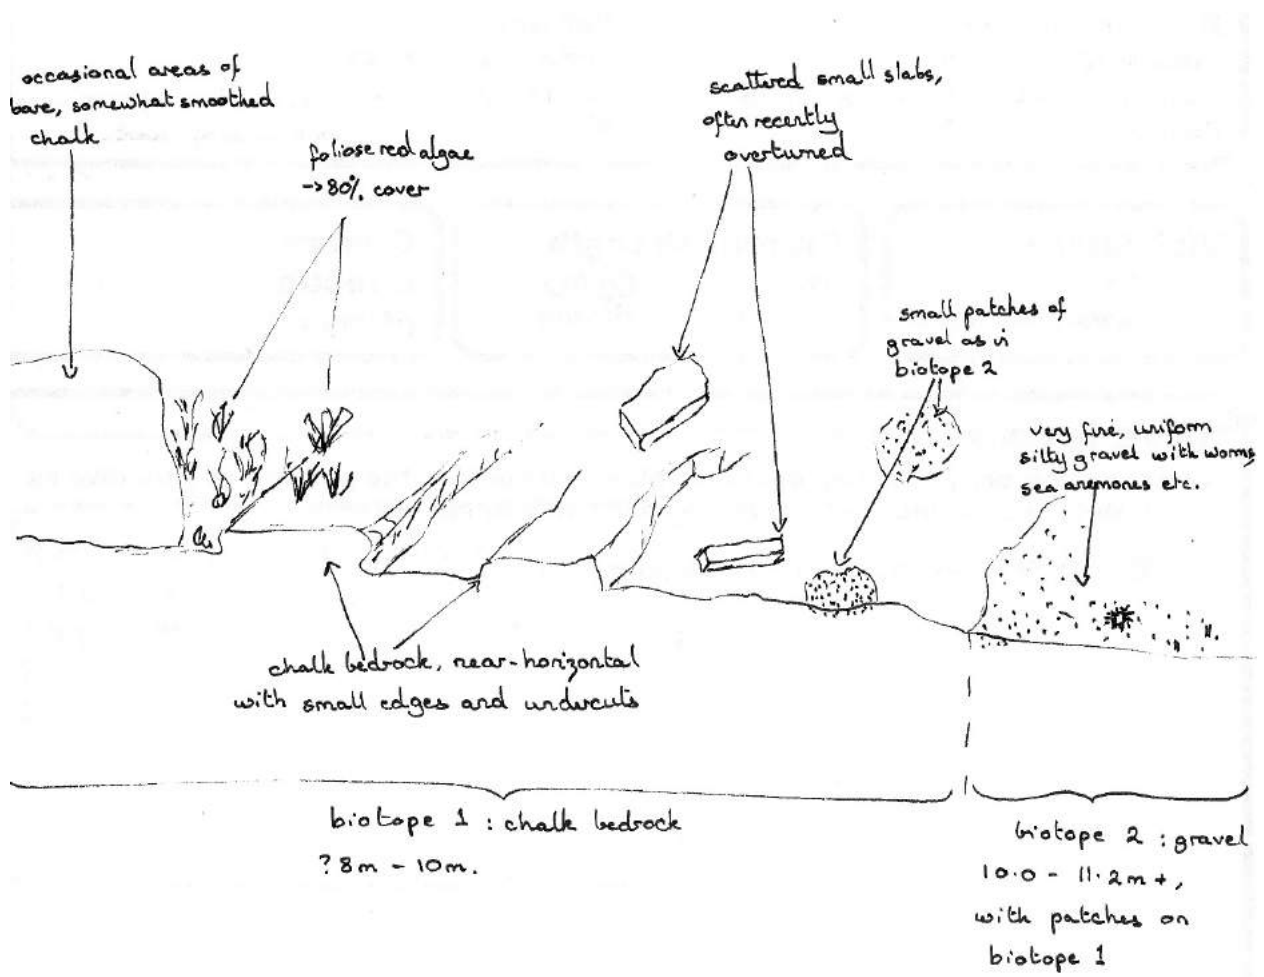 occasional areas of
bare, somewhat smoothed
chalk
foliose red algae
->80% cover
scattered small slabs,
often recently
overturned
small patches of
gravel as in
biotope 2
very fine, uniform
silty gravel with worms,
sea anemones etc.
chalk bedrock, near-horizontal
with small edges and undercuts
biotope 1 : chalk bedrock
? 8m - 10m.
biotope 2 : gravel
10.0 - 11.2m +,
with patches on
biotope 1